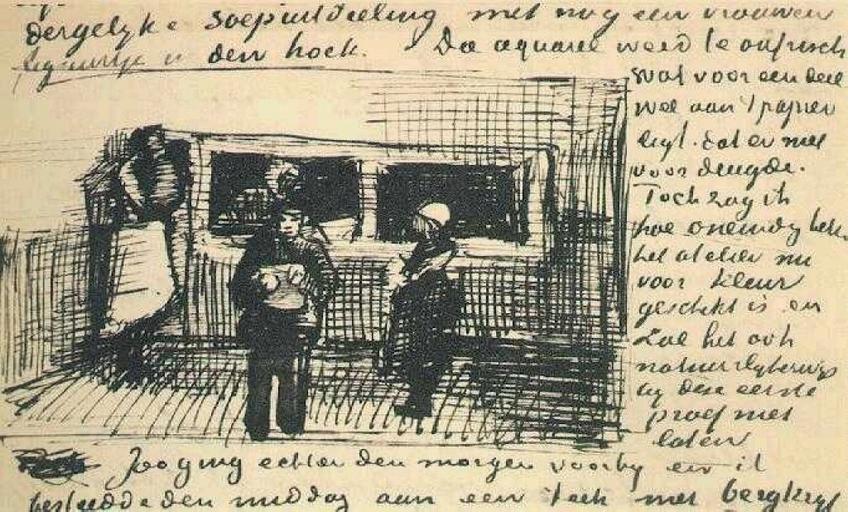 dergelyke soepuitdeeling met nog een vrouwen
figuurtje in den hoek. De aquarel werd te onfrisch
wat voor een deel
wel aan 't papier
ligt. dat er niet
voor deugde.
Toch zag ik
hoe oneindig
het atelier nu
voor kleur
geschikt is en
zal het ook
natuurlyk
by deze eerste
proef niet
laten
Zoo ging echter den morgen voorby en ik
besteedde den middag aan een teek met bergkryt